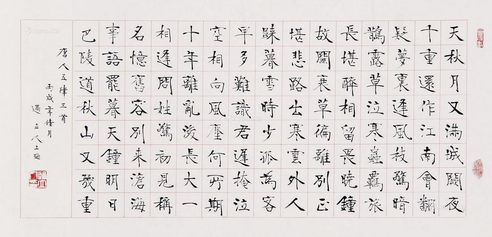 天秋月又滿城闕夜
千重還作江南會翻
疑夢裏逢風枝驚暗
鵲露草泣寒蟲羈旅
長堪醉相留畏曉鐘
故關衰草徧離別正
堪悲路出寒雲外人
歸暮雪時少孤為客
早多難識君遲掩泣
空相向風塵何所期
十年離亂後長大一
相逢問姓驚初見稱
名憶舊容別來滄海
事語罷暮天鐘明日
巴陵道秋山又幾重
唐人五律三首
丙戌年月